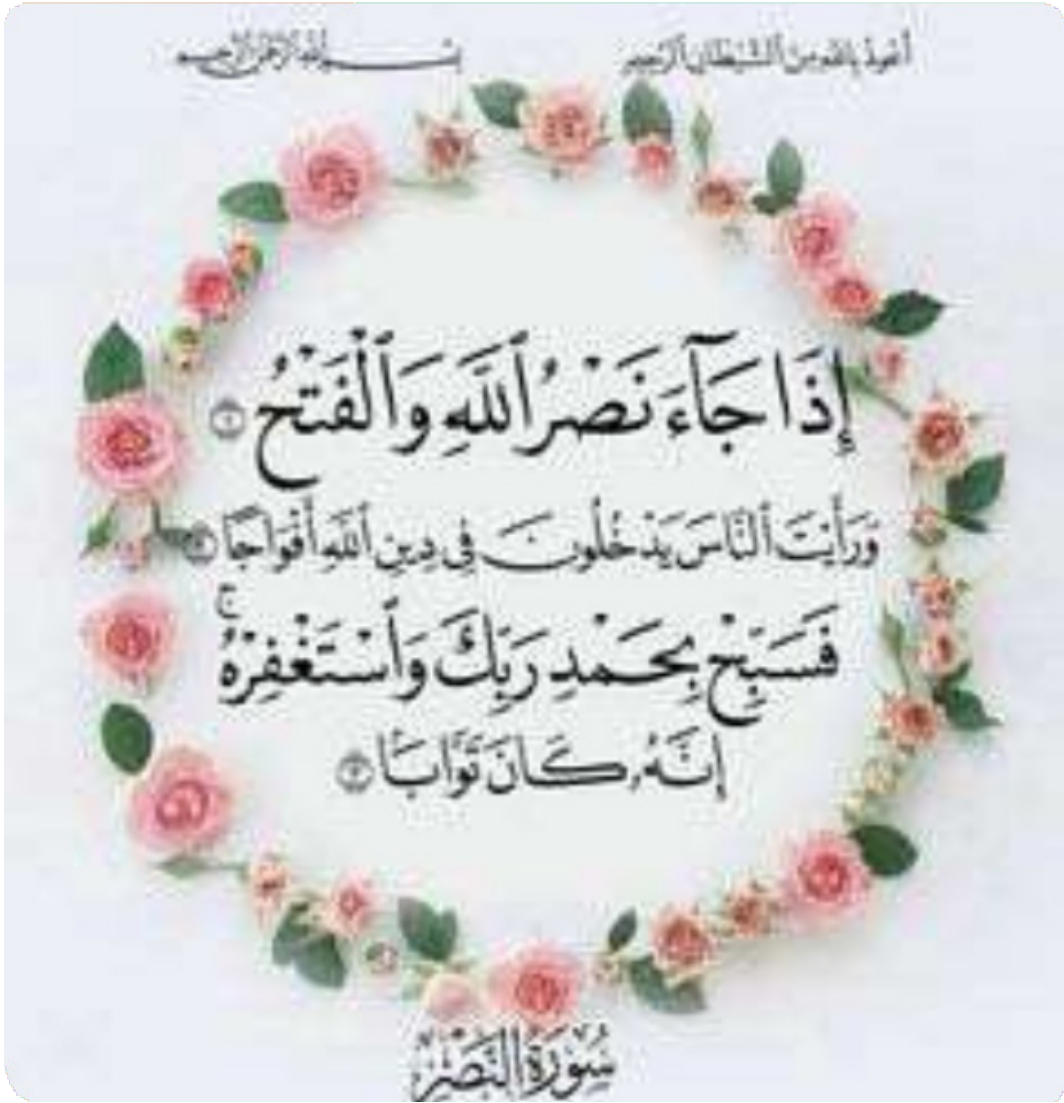 أعوذ بالله من ٱلشيطان ٱلرجيم
بسم ٱلله ٱلرحمن ٱلرحيم
إِذَا جَآءَ نَصْرُ ٱللَّهِ وَٱلْفَتْحُ ١
وَرَأَيْتَ ٱلنَّاسَ يَدْخُلُونَ فِى دِينِ ٱللَّهِ أَفْوَاجًا ٢
فَسَبِّحْ بِحَمْدِ رَبِّكَ وَٱسْتَغْفِرْهُ ۚ
إِنَّهُۥ كَانَ تَوَّابًۢا ٣
سُورَةُ النَّصْرِ